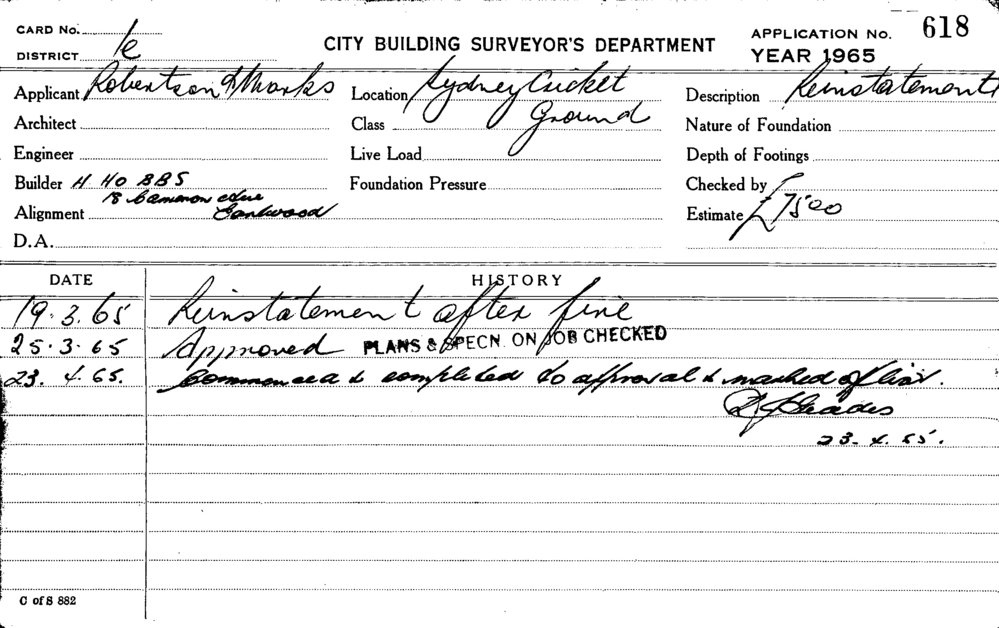 CARD No.
DISTRICT 1e
CITY BUILDING SURVEYOR'S DEPARTMENT
APPLICATION No. 618
YEAR 1965
Applicant Robertson & Marks
Location Sydney Cricket
Ground
Description Reinstatements
Architect
Class
Nature of Foundation
Engineer
Live Load
Depth of Footings
Builder H HOBBS
18 Cameron Ave
Earlwood
Foundation Pressure
Checked by
Alignment
Estimate £7500
D.A.
DATE HISTORY
19.3.65 Reinstatement after fire
25.3.65 Approved PLANS & SPECN. ON JOB CHECKED
23. 4.65. Commenced & completed to approval & marked off list.
23. 4. 65.
C of S 882